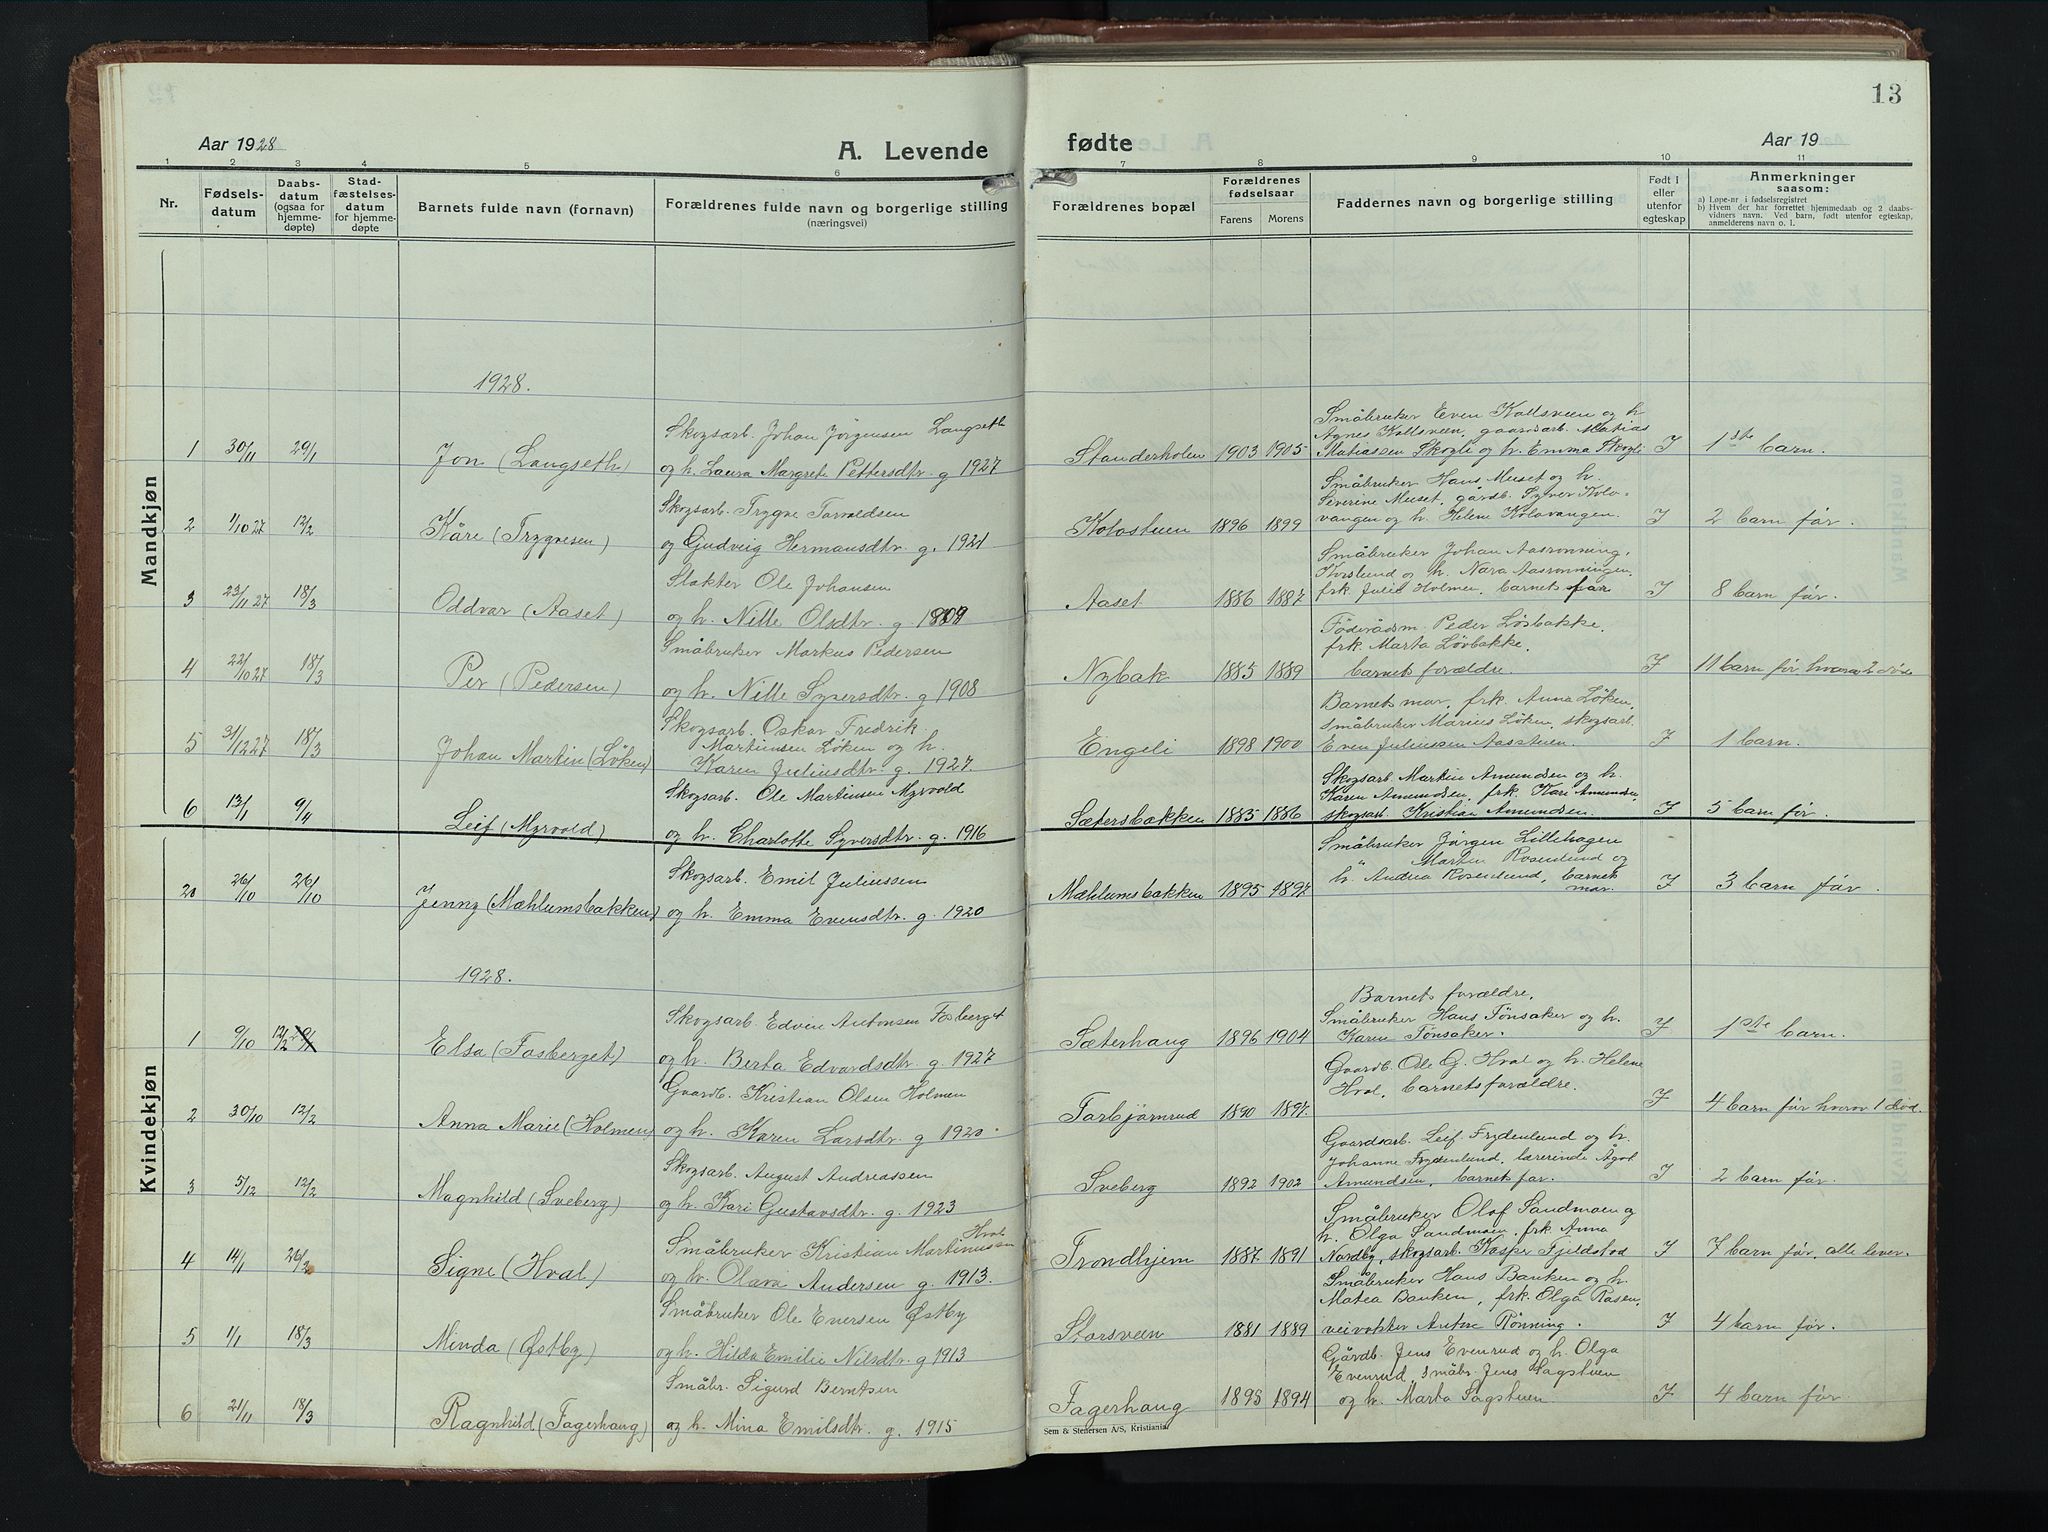 13
Aar 1928
A. Levende
fødte
Aar 19
1 2 3 4 5 6 7 8 9 10 11
Nr.
Fødsels-
datum
Daabs-
datum
(ogsaa for
hjemme-
døpte)
Stad-
fæstelses-
datum
for hjemme-
døpte
Barnets fulde navn (fornavn)
Forældrenes fulde navn og borgerlige stilling
(næringsvei)
Forældrenes bopæl
Forældrenes
fødselsaar
Farens Morens
Faddernes navn og borgerlige stilling
Født i
eller
utenfor
egteskap
Anmerkninger
saasom:
a) Løpe-nr i fødselsregistret
b) Hvem der har forrettet hjemmedaab og 2 daabs-
vidners navn. Ved barn, født utenfor egteskap,
anmelderens navn o. l.
Mandkjøn
1928.
Skogsarb. Johan Jørgensen Langseth
Småbruker Even Kollsveen og h.
Agnes Kollsveen, gaardsarb. Matias
1 30/11 29/1 Jon (Langseth) og h. Laura Margrete Pettersdtr. g 1927 Standerholen 1903 1905 Matiassen Skogli og h. Emma Skogli I 1ste barn.
Skogsarb. Trygve Torvaldsen
Småbruker Hans Muset og h.
Severine Muset, gårdb. Syver Kolo-
2 1/10 27 12/2 Kåre (Trygvesen) og Gudveig Hermansdtr. g. 1921 Kolostuen 1896 1899 vangen og h. Helene Kolovangen. I 2 barn før.
Slakter Ole Johansen
Småbruker Johan Aasrønning,
Korslund og h. Nara Aasrønningen,
3 23/11 27 18/3 Oddvar (Aaset) og h. Nille Olsdtr. g. 1909 Aaset 1886 1887 frk. Julie Holmen, barnets far I 8 barn før.
Småbruker Markus Pedersen
Føderådsm. Peder Løvbakke,
frk. Marta Løvbakke,
4 22/10 27 18/3 Per (Pedersen) og h. Nille Syversdtr. g 1908 Nybak 1885 1889 barnets forældre. I 11 barn før hvorav 2 døde
Skogsarb. Oskar Fredrik
Martinsen Løken og h.
Barnets mor, frk. Anna Løken,
småbruker Marius Løken, skogsarb.
5 31/12 27 18/3 Johan Martin (Løken) Karen Juliusdtr. g. 1927. Engeli 1898 1900 Even Juliussen Aasstuen. I 1 barn.
Skogsarb. Ole Martinsen Myrvold
Skogsarb. Martin Amundsen og h.
Karen Amundsen, frk. Kari Amundsen,
6 13/1 9/4 Leif (Myrvold) og h. Charlotte Syversdtr. g. 1916 Sætersbakken 1885 1886 skogsarb. Kristian Amundsen. I 5 barn før.
Kvindekjøn
Skogsarb. Emil Juliussen
Småbruker Jørgen Lillehagen
" Martin Rosenlund og
20 26/10 26/10 Jenny (Mæhlumsbakken) og h. Emma Evensdtr. g. 1920 Mæhlumsbakken 1895 1897 h. Andrea Rosenlund, barnets mor. I 3 barn før.
1928.
Skogsarb. Edvin Antonsen Fosberget
Barnets forældre,
Småbruker Hans Tønsaker og h.
1 9/10 12/2 Elsa (Fosberget) og h. Berta Edvardsdtr. g. 1927 Sæterhaug 1896 1904 Karen Tønsaker. I 1ste barn.
Gaardb. Kristian Olsen Holmen
Gaardb. Ole G. Hval og h. Helene
Hval, barnets forældre.
2 30/10 12/2 Anna Marie (Holmen) og h. Karen Larsdtr. g 1920 Torbjørnrud 1890 1897. I 4 barn før hvorav 1 død.
Skogsarb. August Andreassen
Gaardsarb. Leif Frydenlund og h.
Johanne Frydenlund, lærerinde Ågot
3 5/12 12/2 Magnhild (Sveberg) og h. Kari Gustavsdtr. g. 1923 Sveberg 1892 1902 Amundsen, barnets far. I 2 barn før.
Småbruker Kristian Martinussen Hval
Småbruker Olof Sandmoen og
h. Olga Sandmoen, frk. Anna
4 14/1 26/2 Signe (Hval) og h. Olava Andersen g. 1913. Trondhjem 1887 1891 Nordby, skogsarb. Kasper Fjeldstad I 7 barn før, alle lever.
Småbruker Ole Evensen Østby
Småbruker Hans Banken og h.
Matea Banken, frk. Olga Rosen,
5 1/1 18/3 Minda (Østby) og h. Hilda Emilie Nilsdtr. g 1913 Storsveen 1881 1889 veivokter Anton Rønning. I 4 barn før.
Småbr. Sigurd Berntsen
Gårdb. Jens Evenrud og h. Olga
Evenrud, småbr. Jens Sagstuen
6 21/11 18/3 Ragnhild (Fagerhaug) og h. Mina Emilsdtr. g. 1915 Fagerhaug 1895 1894 og h. Marta Sagstuen I 4 barn før.
Sem & Stenersen A/S, Kristiania